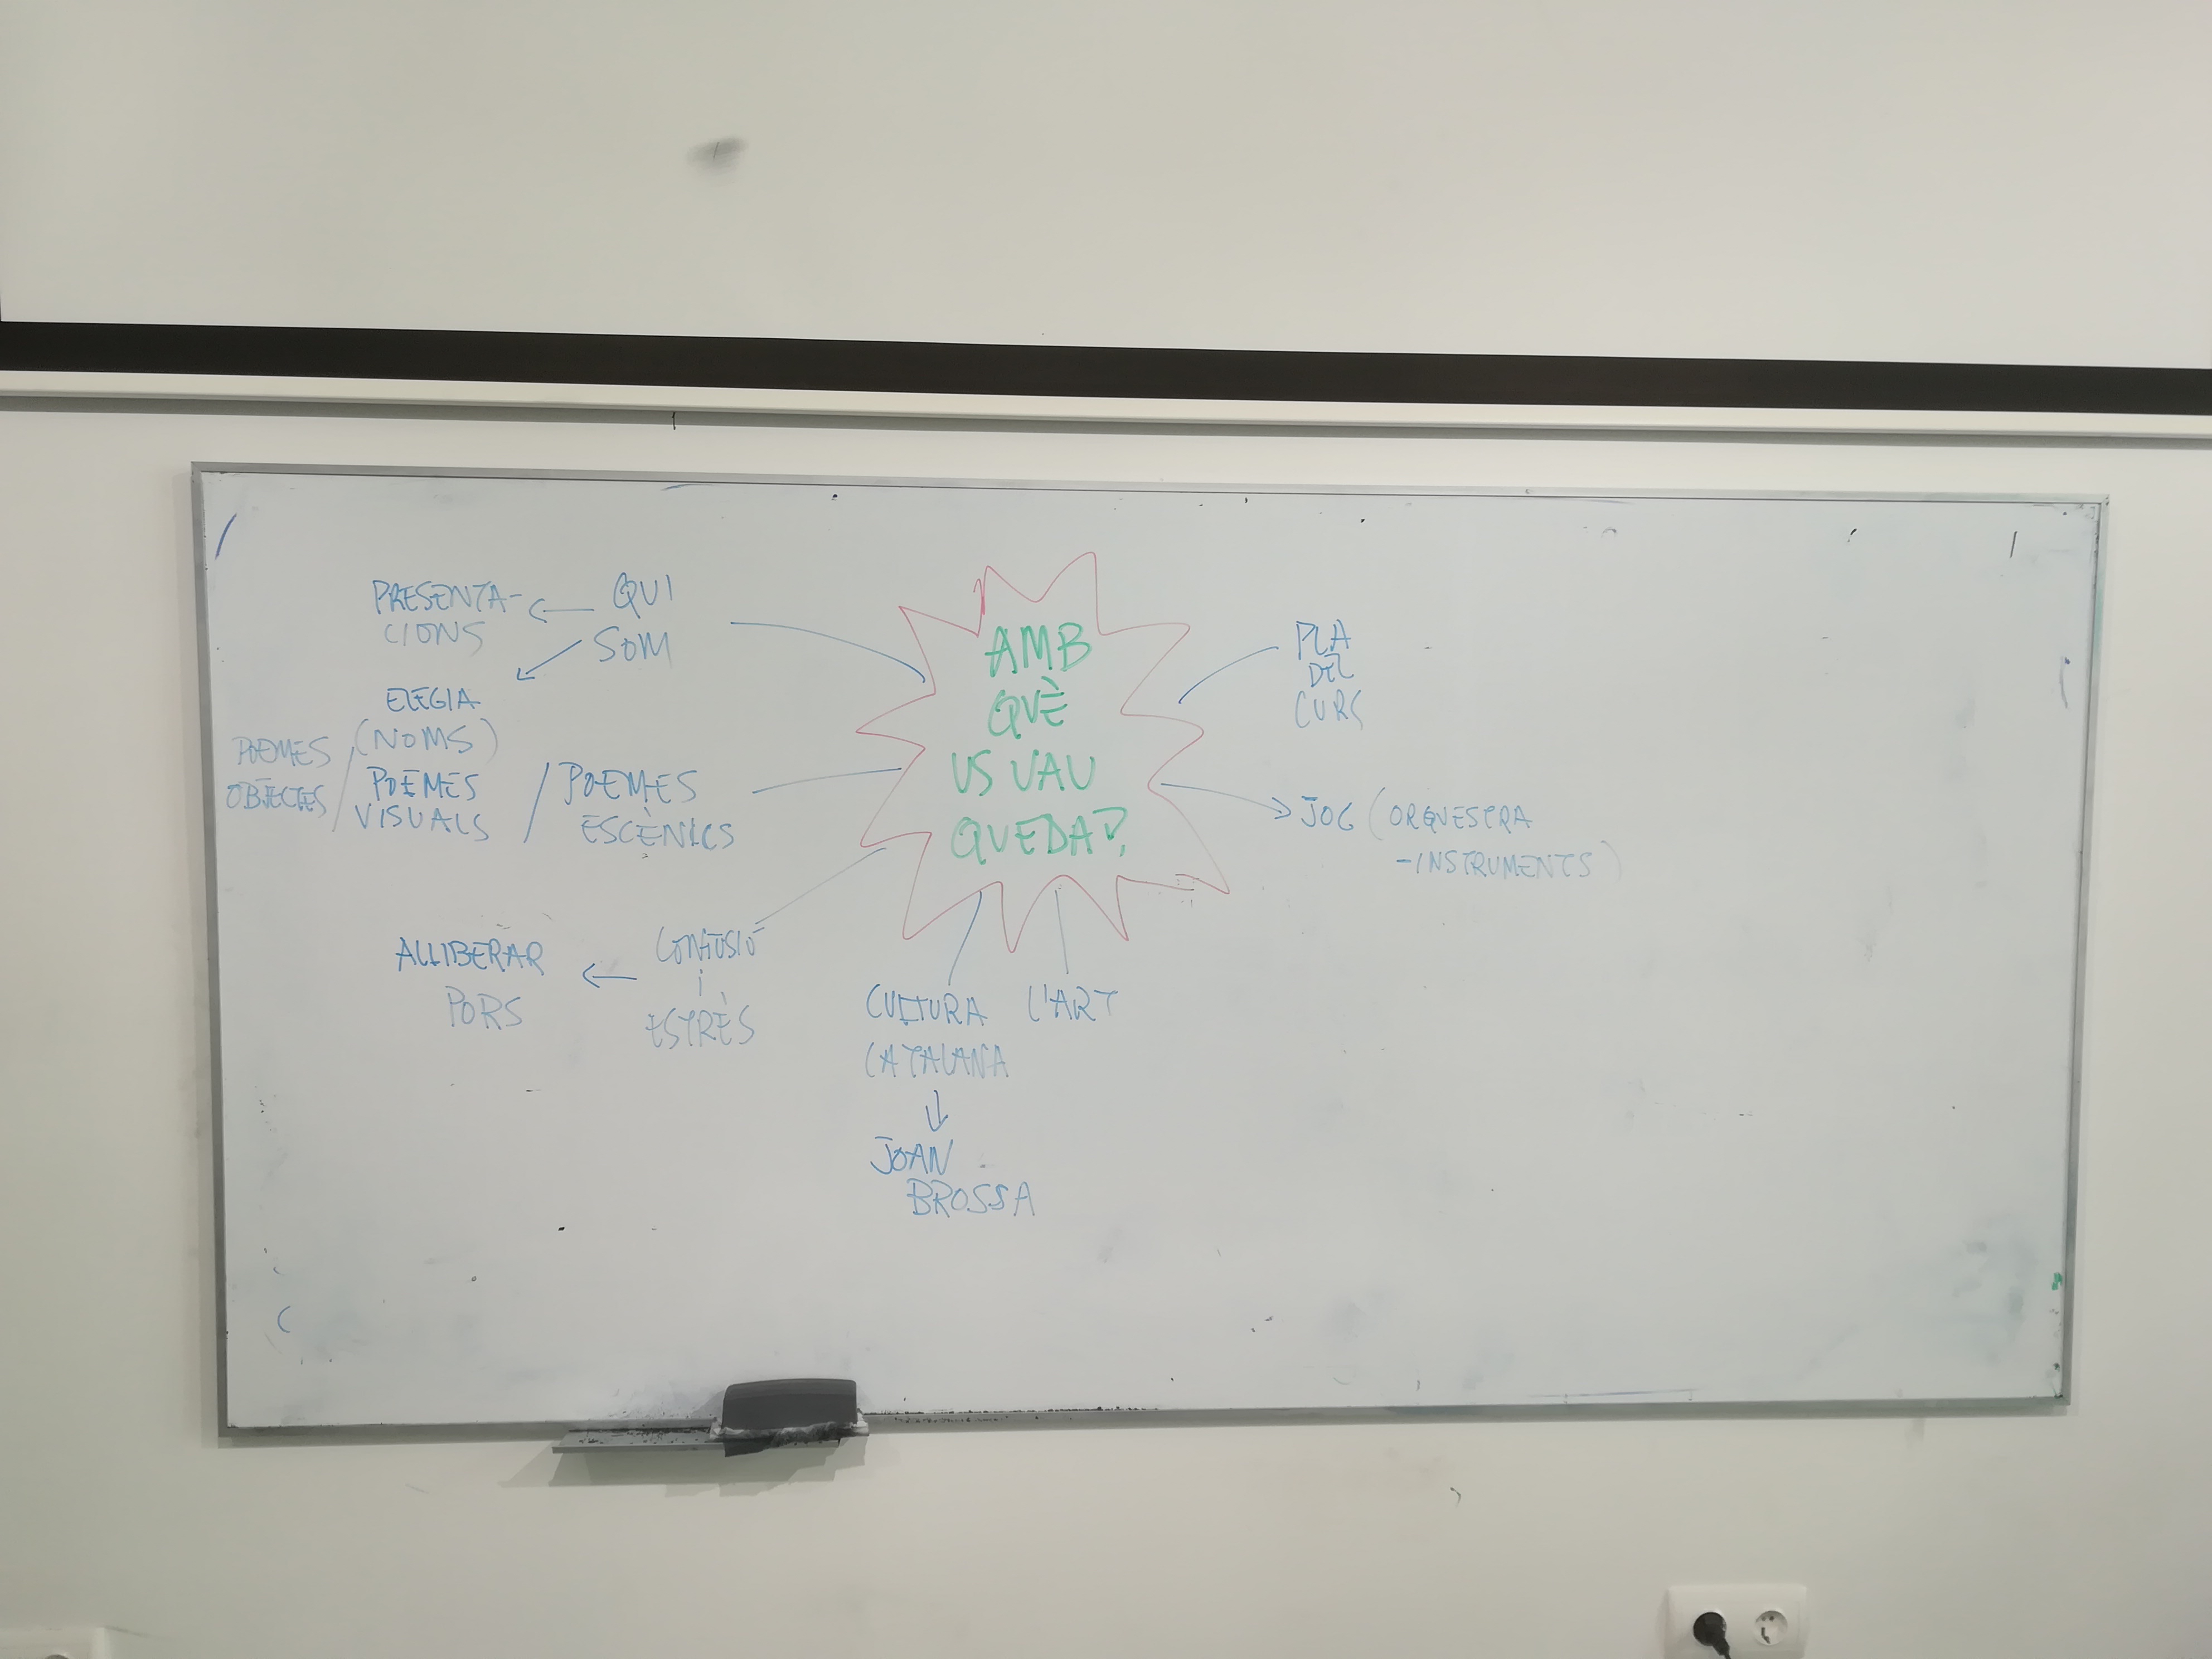 AMB
QUÈ
US VAU
QUEDAR?
PRESENTA-
CIONS
QUI
SOM
ELEGIA
(NOMS)
POEMES
OBJECTES /
POEMES
VISUALS
/ POEMES
ESCÈNICS
ALLIBERAR
PORS
CONFUSIÓ
i
ESTRÈS
CULTURA
CATALANA
JOAN
BROSSA
L'ART
PLA
DEL
CURS
JOC (ORQUESTRA
-INSTRUMENTS)